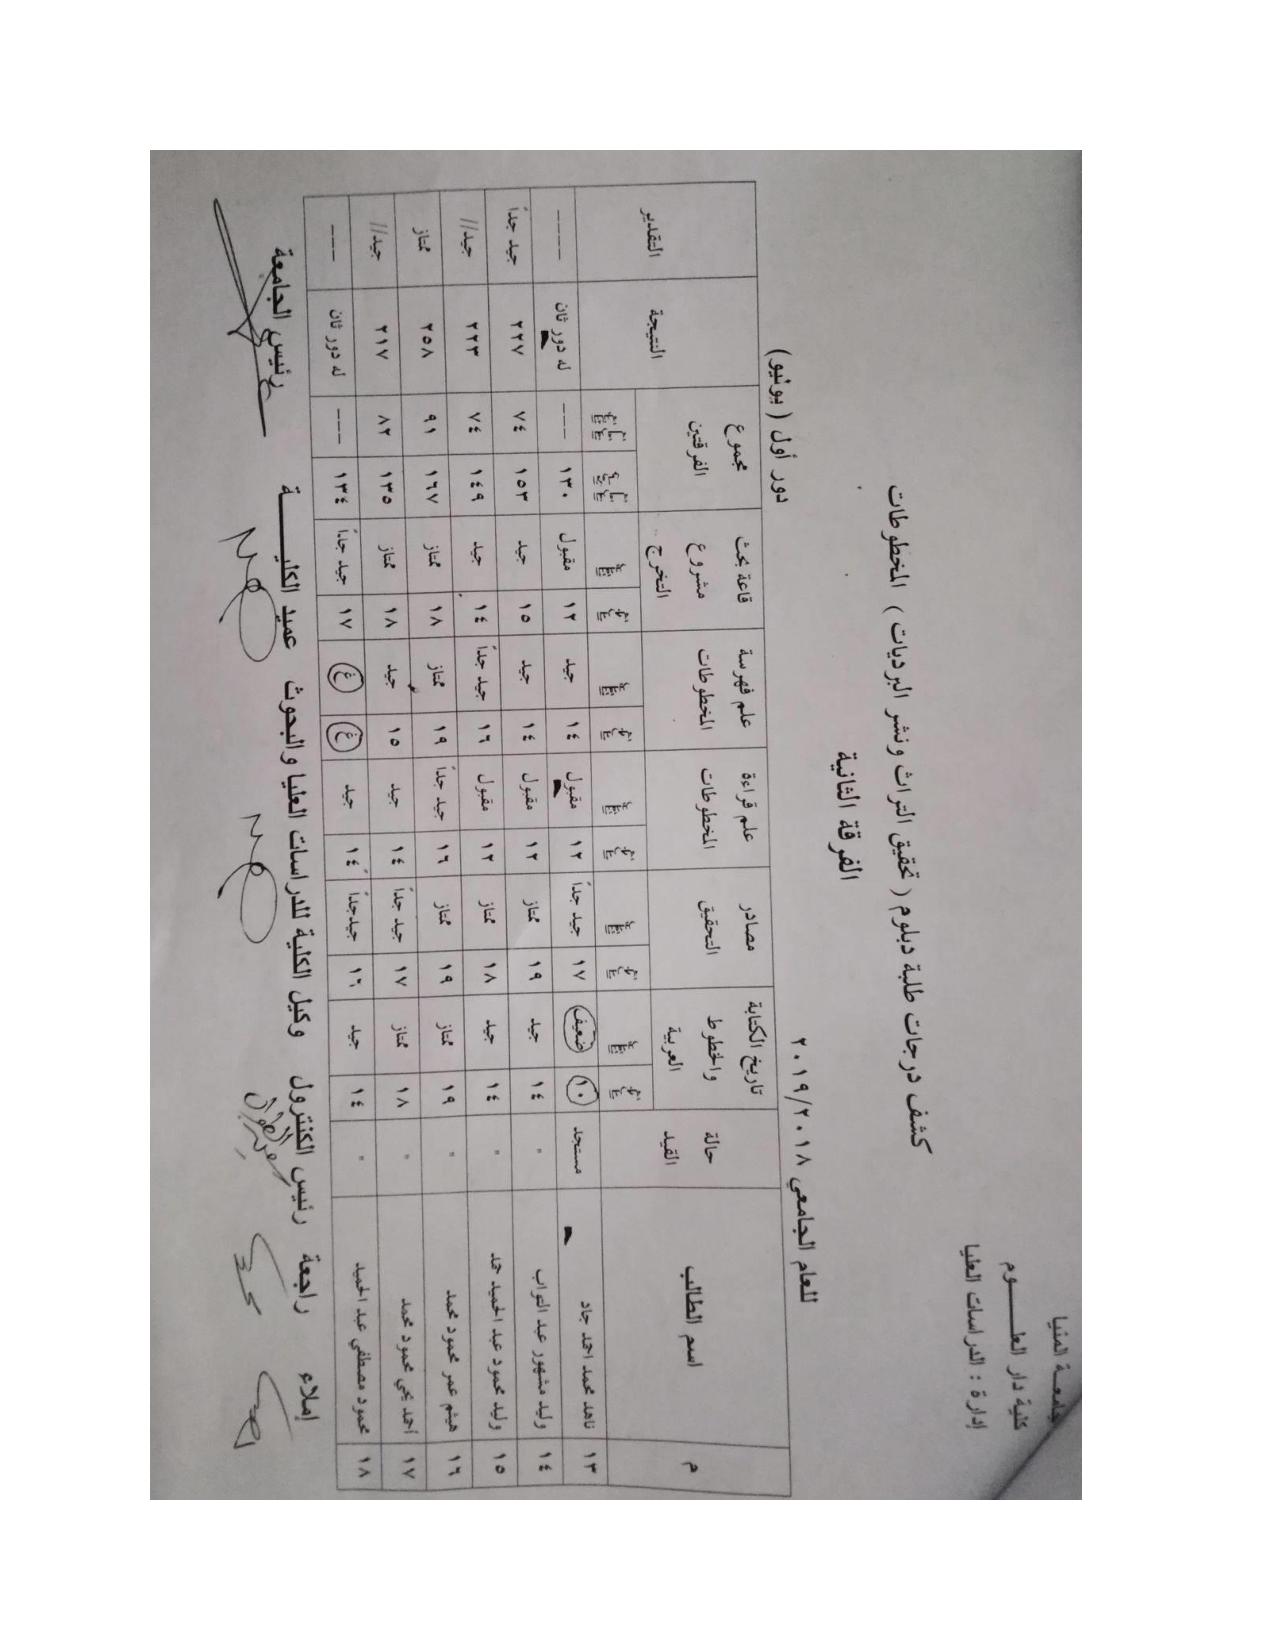 جامعة المنيا
كلية دار العلـــــوم
إدارة : الدراسات العليا
كشف درجات طلبة دبلوم ( تحقيق التراث ونشر البرديات ) المخطوطات
الفرقة الثانية
للعام الجامعي ٢٠١٩/٢٠١٨ دور أول ( يونيو)
م اسم الطالب حالة القيد تاريخ الكتابة والخطوط العربية مصادر التحقيق علم قراءة المخطوطات علم فهرسة المخطوطات قاعة بحث مشروع التخرج مجموع الفرقتين النتيجة التقدير
١٣ ناهد محمد احمد جاد مستجد ١٠ ضعيف ١٧ جيد جداً ١٢ مقبول ١٤ جيد ١٢ مقبول ١٣٠ --- له دور ثان ----
١٤ وليد مشهور عبد التواب " ١٤ جيد ١٩ ممتاز ١٢ مقبول ١٤ جيد ١٥ جيد ١٥٣ ٧٤ ٢٢٧ جيد جداً
١٥ وليد محمود عبد الحميد حمد " ١٤ جيد ١٨ ممتاز ١٢ مقبول ١٦ جيد جداً ١٤ جيد ١٤٩ ٧٤ ٢٢٣ جيد//
١٦ هيثم عمر محمود محمد " ١٩ ممتاز ١٩ ممتاز ١٦ جيد جداً ١٩ ممتاز ١٨ ممتاز ١٦٧ ٩١ ٢٥٨ ممتاز
١٧ أحمد يحي محمود محمد " ١٨ ممتاز ١٧ جيد جداً ١٤ جيد ١٥ جيد ١٨ ممتاز ١٣٥ ٨٢ ٢١٧ جيد//
١٨ محمود مصطفي عبد الحميد " ١٤ جيد ١٦ جيد جداً ١٤ جيد غ غ ١٧ جيد جداً ١٣٤ --- له دور ثان ---
إملاء راجعة رئيس الكنترول وكيل الكلية للدراسات العليا والبحوث عميد الكليـــــــة رئيس الجامعة